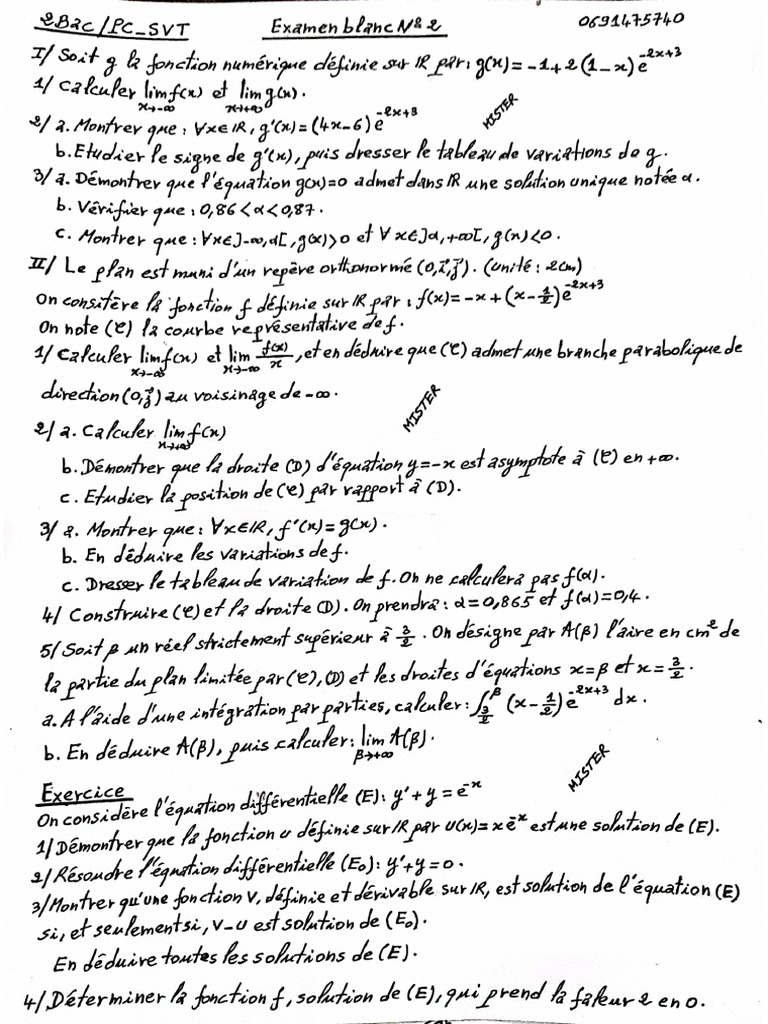 2Bac/PC_SVT Examen blanc N° 2 0691475740
I/ Soit g la fonction numérique définie sur IR par: g(x)=-1+2(1-x)e^{-2x+3}
1/ Calculer lim_{x→-∞} f(x) et lim_{x→+∞} g(x).
2/ a. Montrer que: ∀x∈IR, g'(x)=(4x-6)e^{-2x+3}
MISTER
b. Etudier le signe de g'(x), puis dresser le tableau de variations de g.
3/ a. Démontrer que l'équation g(x)=0 admet dans IR une solution unique notée α.
b. Vérifier que: 0,86<α<0,87.
c. Montrer que: ∀x∈]-∞,α[, g(x)>0 et ∀x∈]α,+∞[, g(x)<0.
II/ Le plan est muni d'un repère orthonormé (O,i⃗,j⃗). (unité: 2cm)
On consitère la fonction f définie sur IR par: f(x)=-x+(x-1/2)e^{-2x+3}
On note (C) la courbe représentative de f.
1/ Calculer lim_{x→-∞} f(x) et lim_{x→-∞} f(x)/x, et en déduire que (C) admet une branche parabolique de
direction (O,j⃗) au voisinage de -∞.
MISTER
2/ a. Calculer lim_{x→+∞} f(x)
b. Démontrer que la droite (D) d'équation y=-x est asymptote à (C) en +∞.
c. Etudier la position de (C) par rapport à (D).
3/ a. Montrer que: ∀x∈IR, f'(x)=g(x).
b. En déduire les variations de f.
c. Dresser le tableau de variation de f. On ne calculera pas f(α).
4/ Construire (C) et la droite (D). On prendra: α=0,865 et f(α)=0,4.
5/ Soit β un réel strictement supérieur à 3/2. On désigne par A(β) l'aire en cm² de
la partie du plan limitée par (C), (D) et les droites d'équations x=β et x=3/2.
a. A l'aide d'une intégration par parties, calculer: ∫_{3/2}^{β} (x-1/2)e^{-2x+3} dx.
b. En déduire A(β), puis calculer: lim_{β→+∞} A(β).
MISTER
Exercice
On considère l'équation différentielle (E): y'+y=e^{-x}
1/ Démontrer que la fonction u définie sur IR par u(x)=xe^{-x} est une solution de (E).
2/ Résoudre l'équation différentielle (E₀): y'+y=0.
3/ Montrer qu'une fonction v, définie et dérivable sur IR, est solution de l'équation (E)
si, et seulement si, v-u est solution de (E₀).
En déduire toutes les solutions de (E).
4/ Déterminer la fonction f, solution de (E), qui prend la faleur 2 en 0.